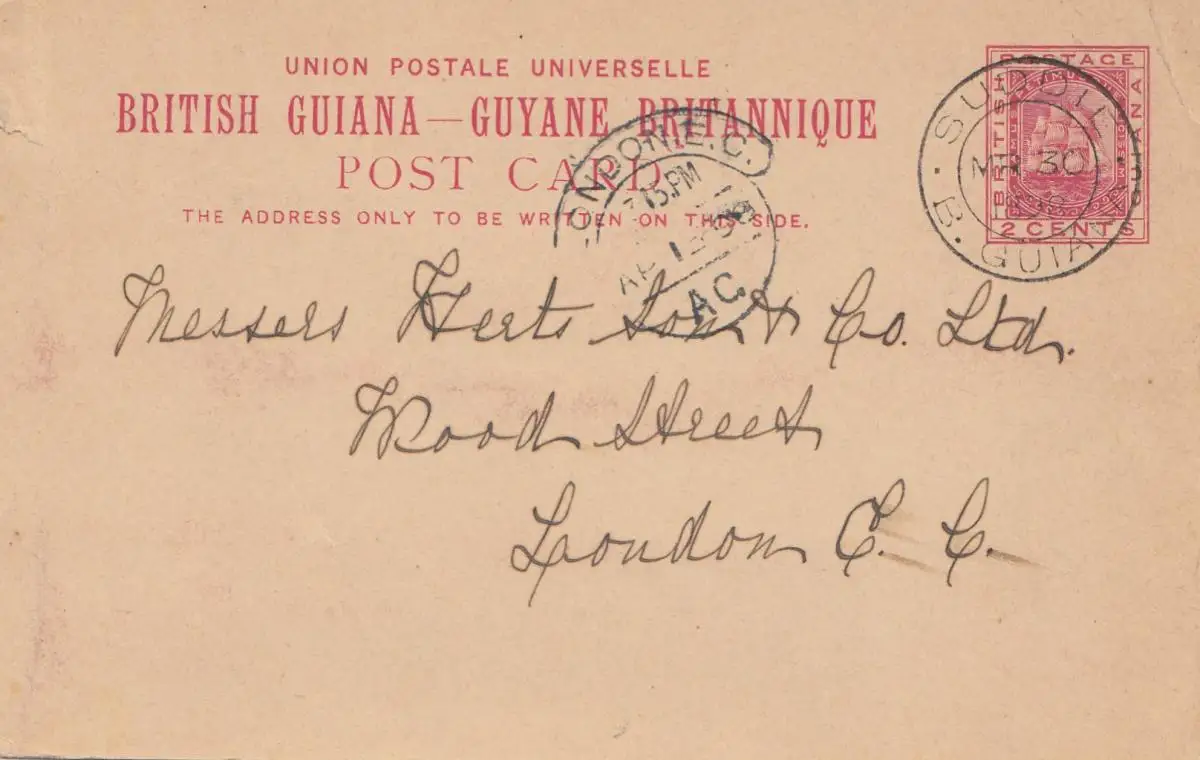 UNION POSTALE UNIVERSELLE
BRITISH GUIANA—GUYANE BRITANNIQUE
POST CARD
THE ADDRESS ONLY TO BE WRITTEN ON THIS SIDE.
POSTAGE
BRITISH
GUIANA
2 CENTS
SUDDIE
MR 30
B. GUIANA
LONDON. E.C.
15.PM
AP 15
AC
Messers Herts Son & Co. Ltd.
Wood Street
London E. C.